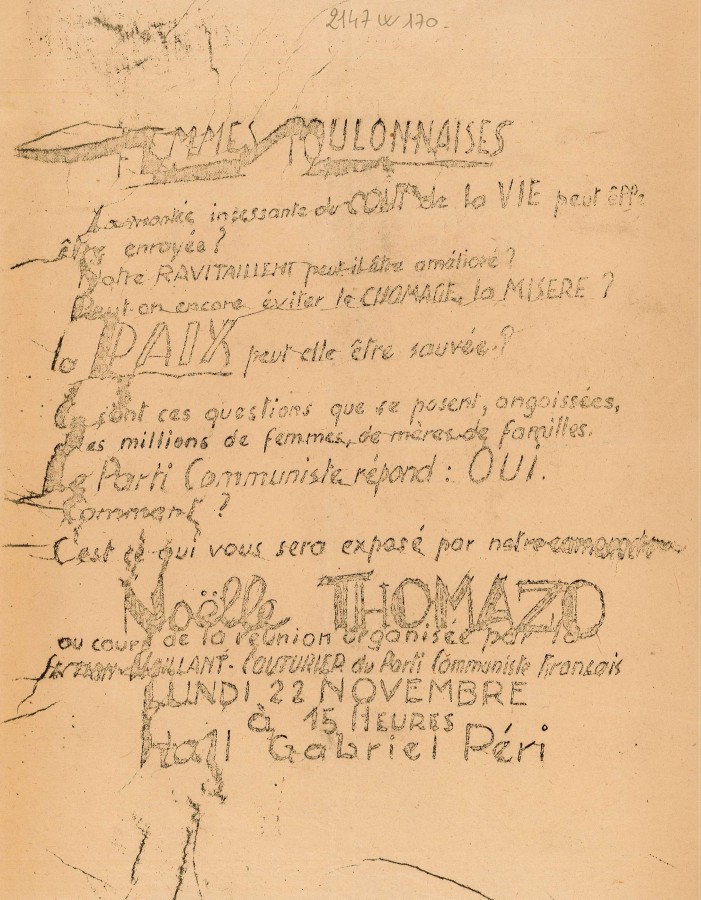 2147 W 170.
FEMMES TOULONNAISES
La montée incessante du COUT de la VIE peut êPPe
être enrayée ?
Notre RAVITAILLENT peut-il être amélioré ?
Peut-on encore éviter le CHOMAGE, la MISERE ?
la PAIX peut elle être sauvée ?
Ce sont ces questions que se posent, angoissées,
des millions de femmes, de mères de familles.
Le Parti Communiste répond : OUI.
Comment ?
C'est ce qui vous sera exposé par notre camarade
Noëlle THOMAZO
au cours de la réunion organisée par la
SECTION VAILLANT-COUTURIER du Parti Communiste Français
LUNDI 22 NOVEMBRE
à 15 HEURES
Hall Gabriel Péri